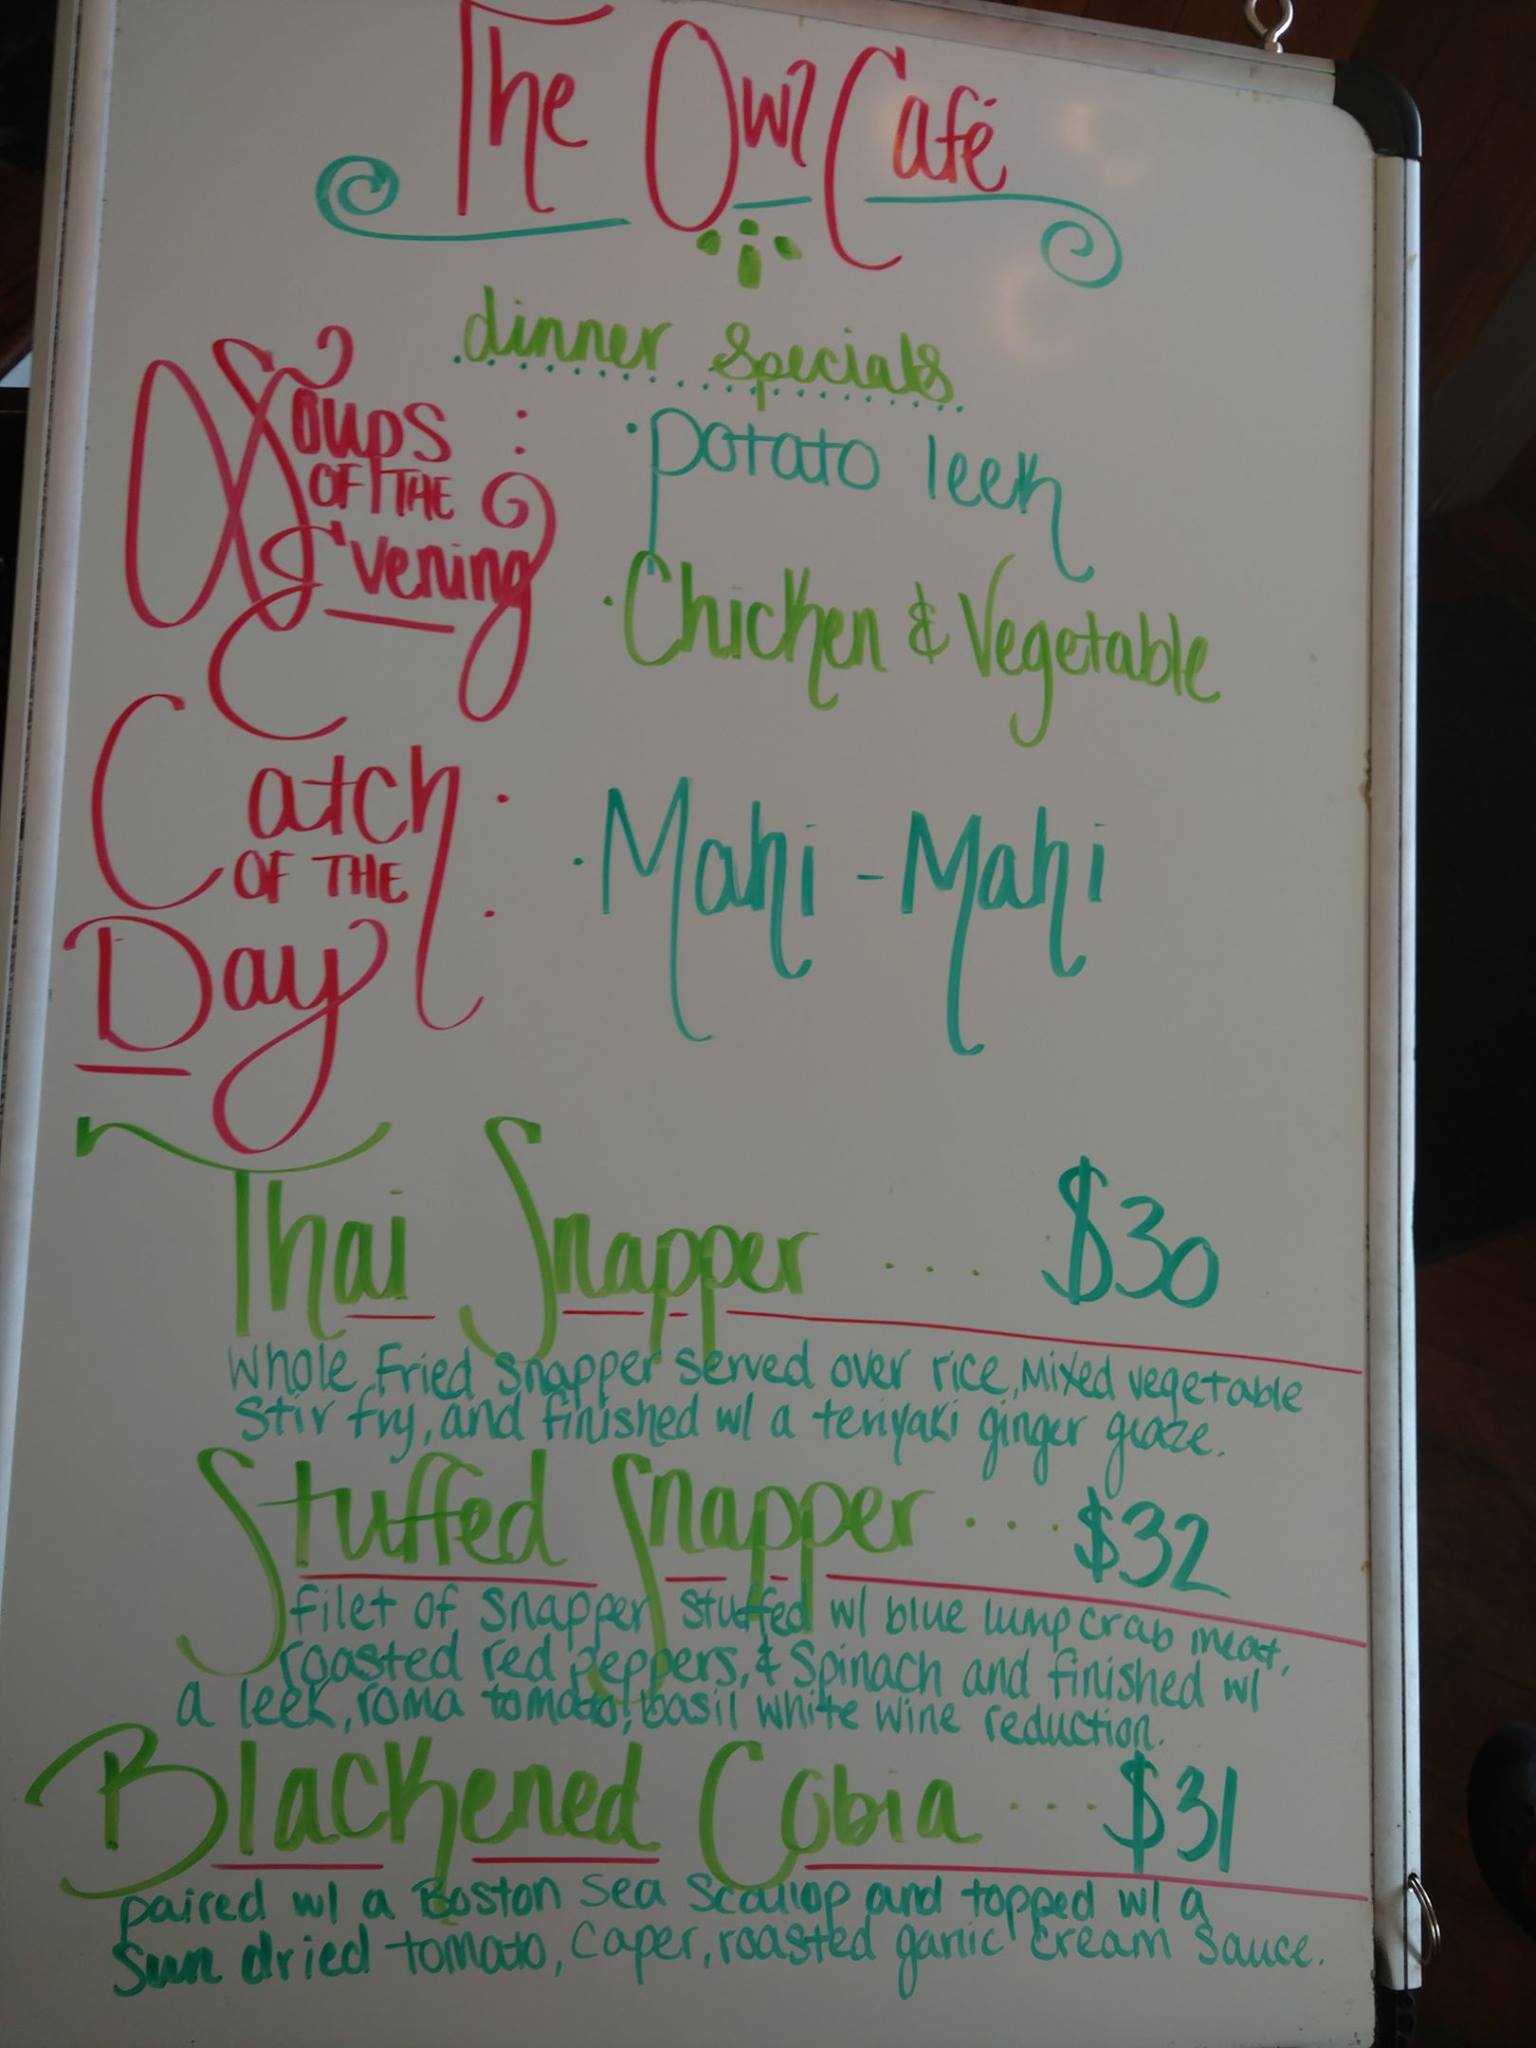 The Owl Café
dinner specials
Soups
OF THE
Evening
:
· potato leek
· Chicken & Vegetable
Catch
OF THE
Day
:
· Mahi - Mahi
Thai Snapper .... $30
Whole Fried Snapper served over rice, mixed vegetable
Stir fry, and finished w/ a teriyaki ginger glaze.
Stuffed Snapper .... $32
filet of snapper stuffed w/ blue lump crab meat,
roasted red peppers, & spinach and finished w/
a leek, roma tomato, basil white wine reduction.
Blackened Cobia .... $31
paired w/ a Boston Sea Scallop and topped w/ a
Sun dried tomato, caper, roasted garlic cream sauce.